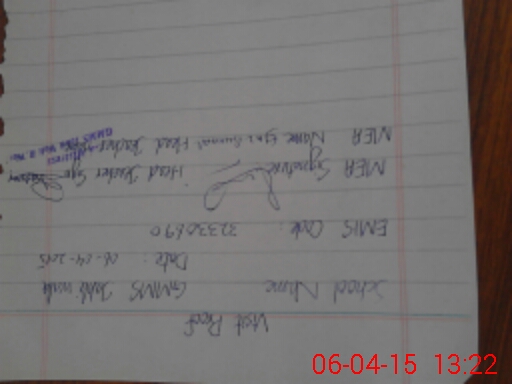 Visit Proof
School Name GMMS
Date: 06-04-2015
EMIS Code: 32330690
MEA Signature Head Teacher Sign
MEA Name Head Teacher
06-04-15 13:22